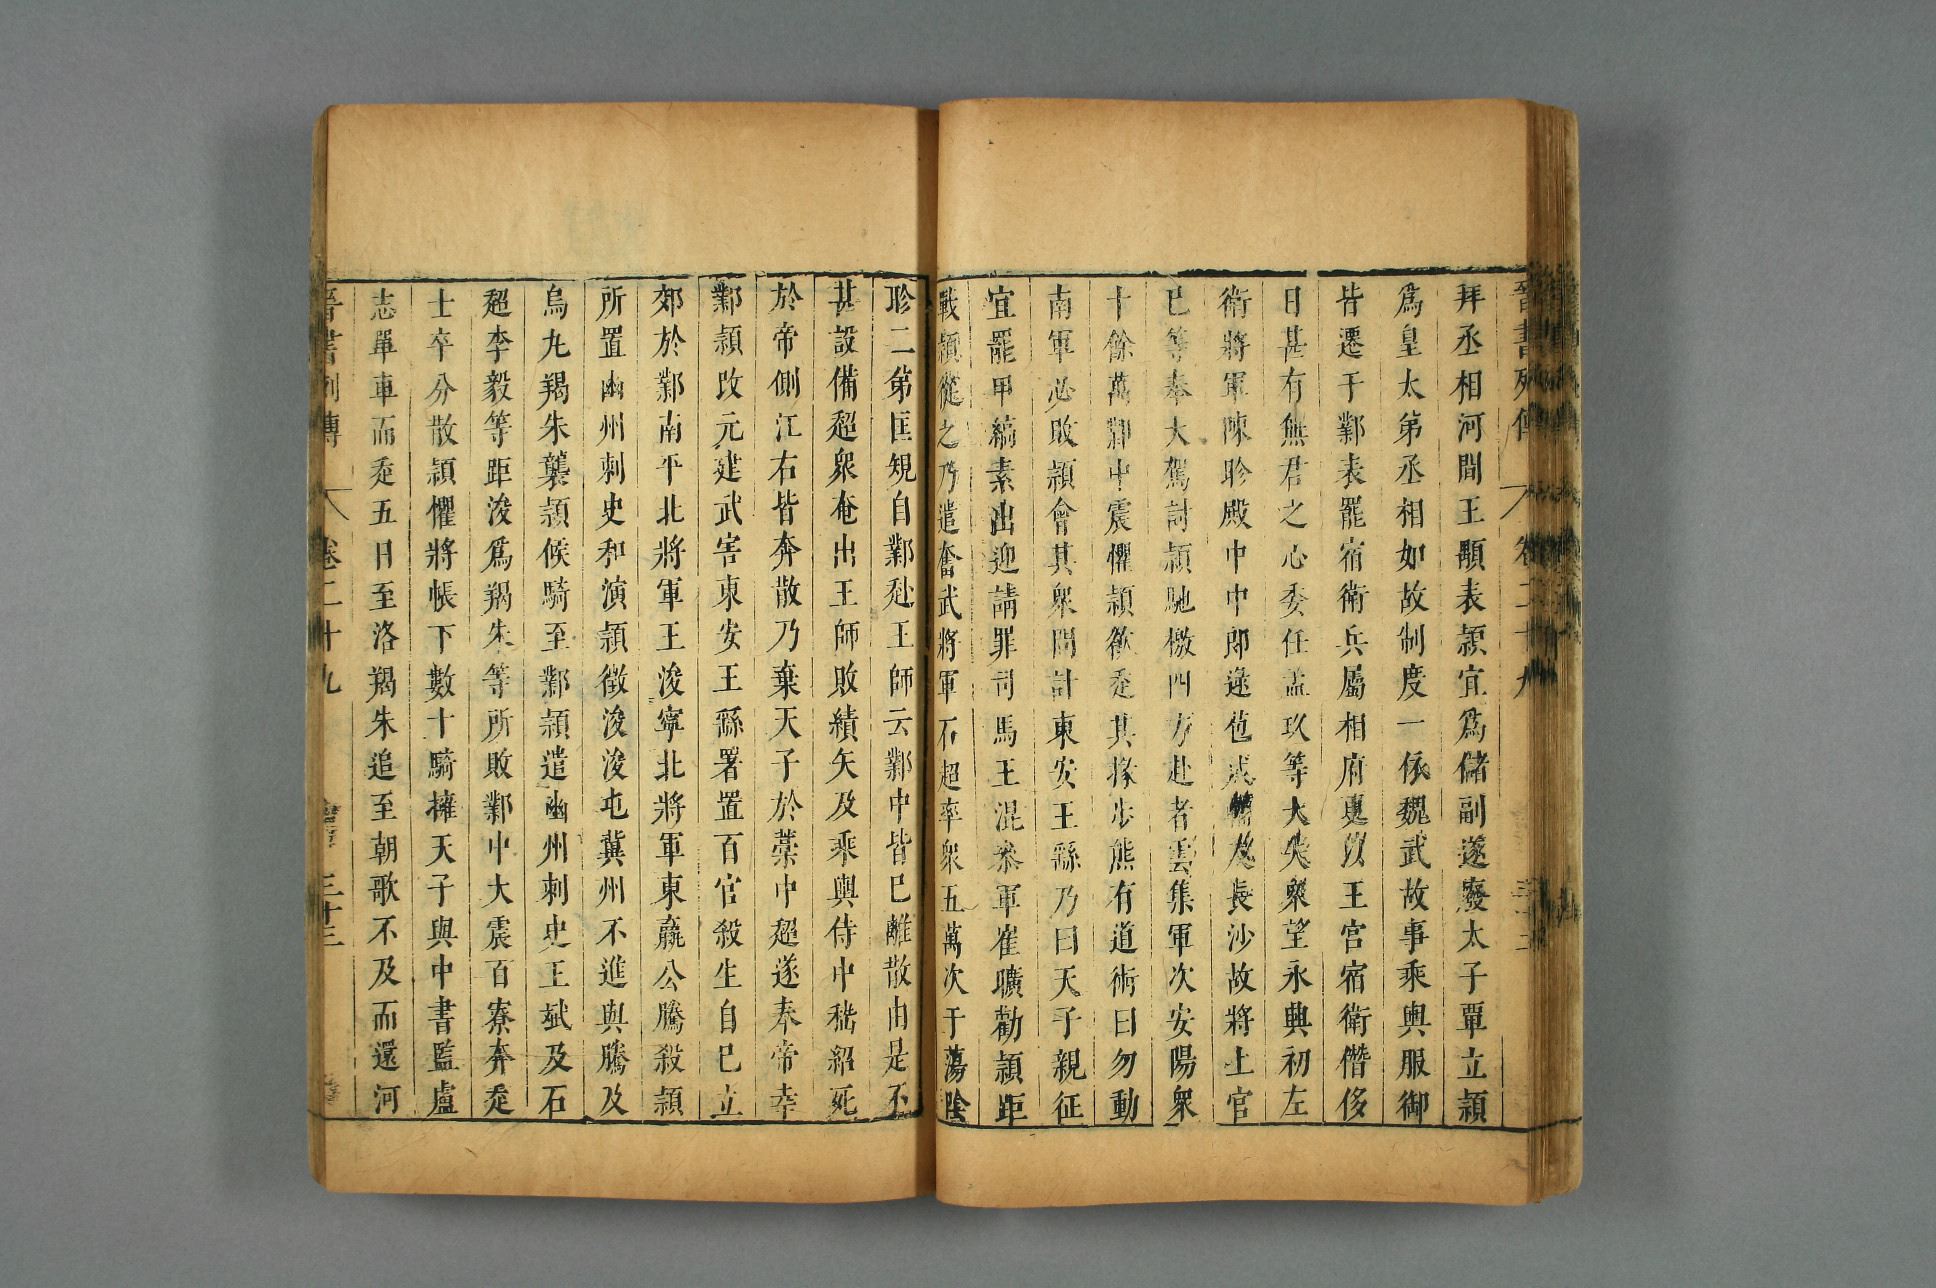 晉書列傳 卷二十九 三十二
拜丞相河間王顒表穎宜爲儲副遂廢太子覃立穎
爲皇太弟丞相如故制度一依魏武故事乘輿服御
皆遷于鄴表罷宿衛兵屬相府更以王官宿衛僭侈
日甚有無君之心委任孟玖等大失衆望永興初左
衛將軍陳眕殿中中郎逯苞成輔及長沙故將上官
巳等奉大駕討穎馳檄四方赴者雲集軍次安陽衆
十餘萬鄴中震懼穎欲走其掾步熊有道術曰勿動
南軍必敗穎會其衆問計東安王繇乃曰天子親征
宜罷甲縞素出迎請罪司馬王混參軍崔曠勸穎距
戰穎從之乃遣奮武將軍石超率衆五萬次于蕩陰
眕二弟匡規自鄴赴王師云鄴中皆巳離散由是不
甚設備超衆奄出王師敗績矢及乘輿侍中嵇紹死
於帝側左右皆奔散乃棄天子於藁中超遂奉帝幸
鄴穎改元建武害東安王繇署置百官殺生自巳立
郊於鄴南平北將軍王浚寧北將軍東嬴公騰殺穎
所置幽州刺史和演穎徵浚浚屯冀州不進與騰及
烏丸羯朱襲穎候騎至鄴穎遣幽州刺史王斌及石
超李毅等距浚爲羯朱等所敗鄴中大震百寮奔走
士卒分散穎懼將帳下數十騎擁天子與中書監盧
志單車而走五日至洛羯朱追至朝歌不及而還河
晉書列傳 卷二十九 三十三